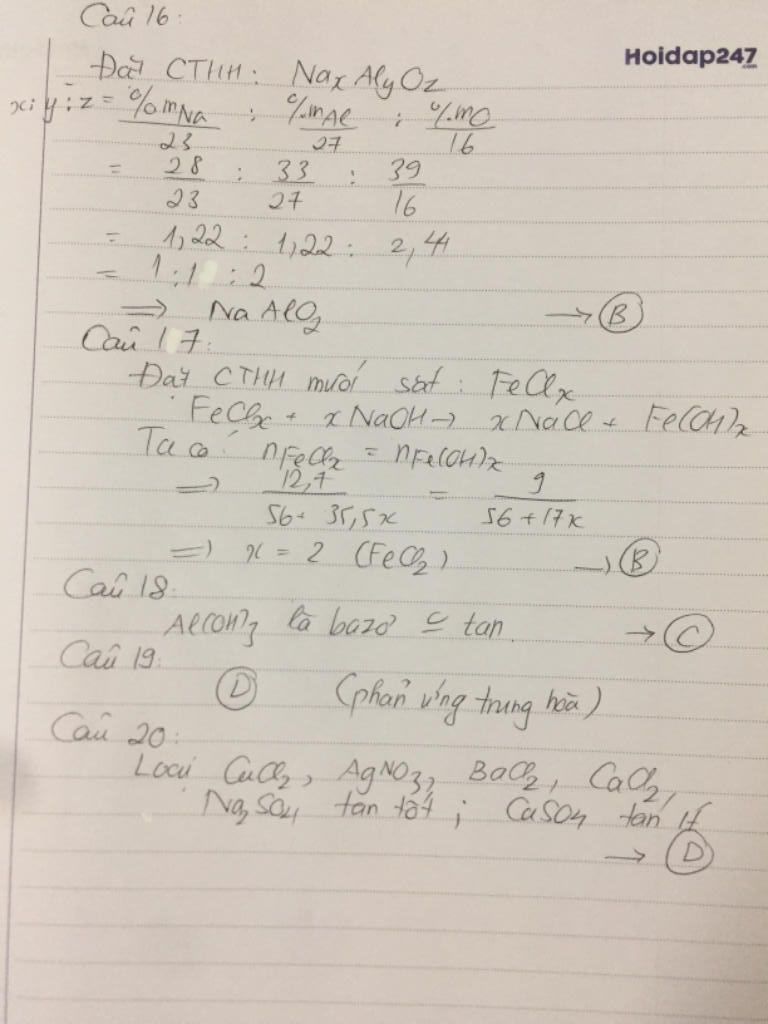 Câu 16:
Hoidap247.com
Đặt CTHH: NaxAlyOz
x:y:z = %mNa/23 : %mAl/27 : %mO/16
= 28/23 : 33/27 : 39/16
= 1,22 : 1,22 : 2,44
= 1:1:2
=> NaAlO2 → B
Câu 17:
Đặt CTHH muối sắt: FeClx
FeClx + xNaOH → xNaCl + Fe(OH)x
Ta có: nFeClx = nFe(OH)x
=> 12,7/56+35,5x = 9/56+17x
=> x = 2 (FeCl2) → B
Câu 18:
Al(OH)3 là bazơ tan → C
Câu 19:
D (phản ứng trung hoà)
Câu 20:
Loại CuCl2, AgNO3, BaCl2, CaCl2,
Na2SO4 tan tốt; CaSO4 tan ít
→ D